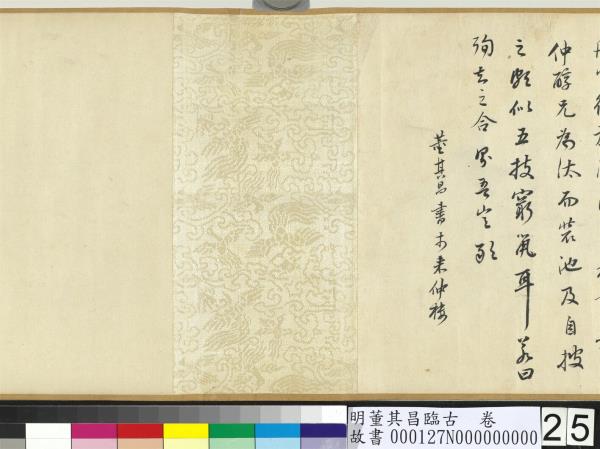 仲醇兄為汰而裝池及自披
之頗似五技窮鼠耳若曰
殉知之合累吾豈敢
董其昌書於來仲樓
明董其昌臨古 卷
故書 000127N000000000
25